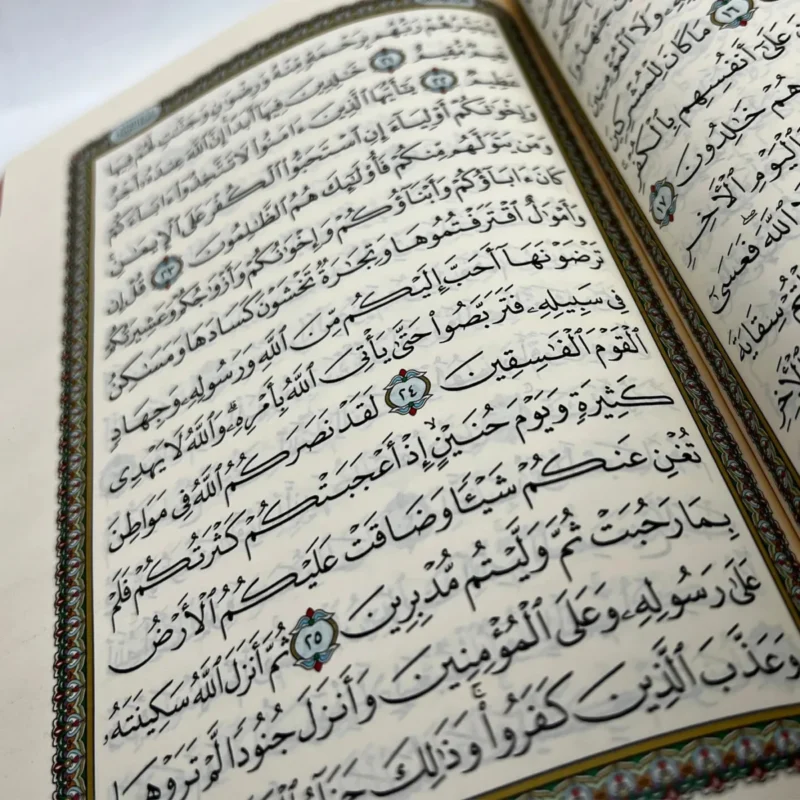 وَلَا ٱلْمُؤْمِنِينَ
١٦ مَا كَانَ لِلْمُشْرِكِينَ
عَلَىٰٓ أَنفُسِهِم بِٱلْكُفْرِ
هُمْ خَٰلِدُونَ ١٧
ٱلْيَوْمِ ٱلْأَخِرِ
ٱللَّهَ فَعَسَىٰٓ
سِقَايَةَ
ٱلْأَخِرِ
يُبَشِّرُهُمْ رَبُّهُم بِرَحْمَةٍ مِّنْهُ وَرِضْوَٰنٍ وَجَنَّٰتٍ لَّهُمْ فِيهَا
نَعِيمٌ مُّقِيمٌ ٢١ خَٰلِدِينَ فِيهَآ أَبَدًا إِنَّ ٱللَّهَ عِندَهُۥٓ أَجْرٌ
عَظِيمٌ ٢٢ يَٰٓأَيُّهَا ٱلَّذِينَ ءَامَنُوا۟ لَا تَتَّخِذُوٓا۟ ءَابَآءَكُمْ
وَإِخْوَٰنَكُمْ أَوْلِيَآءَ إِنِ ٱسْتَحَبُّوا۟ ٱلْكُفْرَ عَلَى ٱلْإِيمَٰنِ
وَمَن يَتَوَلَّهُم مِّنكُمْ فَأُو۟لَٰٓئِكَ هُمُ ٱلظَّٰلِمُونَ ٢٣ قُلْ إِن
كَانَ ءَابَآؤُكُمْ وَأَبْنَآؤُكُمْ وَإِخْوَٰنُكُمْ وَأَزْوَٰجُكُمْ وَعَشِيرَتُكُمْ
وَأَمْوَٰلٌ ٱقْتَرَفْتُمُوهَا وَتِجَٰرَةٌ تَخْشَوْنَ كَسَادَهَا وَمَسَٰكِنُ
تَرْضَوْنَهَآ أَحَبَّ إِلَيْكُم مِّنَ ٱللَّهِ وَرَسُولِهِۦ وَجِهَادٍ
فِى سَبِيلِهِۦ فَتَرَبَّصُوا۟ حَتَّىٰ يَأْتِىَ ٱللَّهُ بِأَمْرِهِۦ ۗ وَٱللَّهُ لَا يَهْدِى
ٱلْقَوْمَ ٱلْفَٰسِقِينَ ٢٤ لَقَدْ نَصَرَكُمُ ٱللَّهُ فِى مَوَاطِنَ
كَثِيرَةٍ وَيَوْمَ حُنَيْنٍ ۙ إِذْ أَعْجَبَتْكُمْ كَثْرَتُكُمْ فَلَمْ
تُغْنِ عَنكُمْ شَيْـًٔا وَضَاقَتْ عَلَيْكُمُ ٱلْأَرْضُ
بِمَا رَحُبَتْ ثُمَّ وَلَّيْتُم مُّدْبِرِينَ ٢٥ ثُمَّ أَنزَلَ ٱللَّهُ سَكِينَتَهُۥ
عَلَىٰ رَسُولِهِۦ وَعَلَى ٱلْمُؤْمِنِينَ وَأَنزَلَ جُنُودًا لَّمْ تَرَوْهَا
وَعَذَّبَ ٱلَّذِينَ كَفَرُوا۟ ۚ وَذَٰلِكَ جَزَآءُ